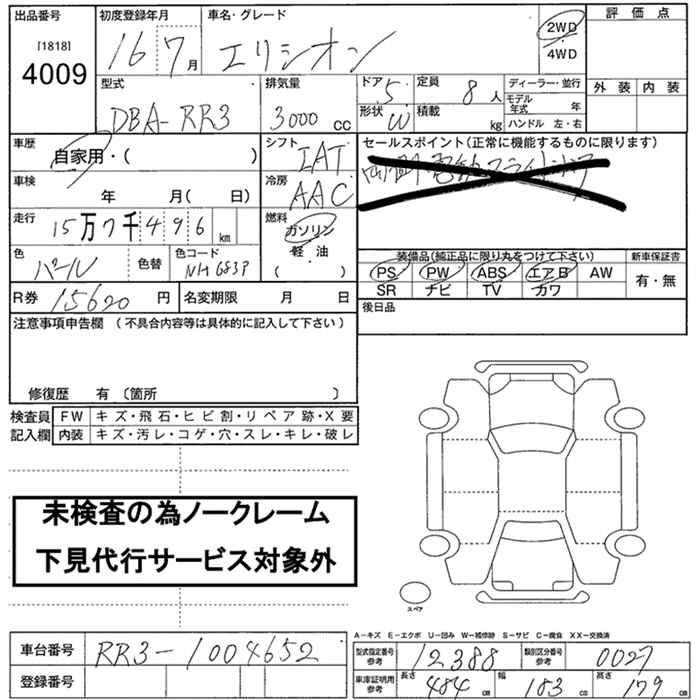 出品番号
[1818]
4009
初度登録年月
16 7月
車名・グレード
エリシオン
2WD
4WD
評価点
外装 内装
型式
DBA-RR3
排気量
3000 cc
ドア 5
形状 W
定員 8 人
積載 kg
ディーラー・並行
モデル年式 年
ハンドル 左・右
車歴
自家用・( )
シフト
IAT
セールスポイント(正常に機能するものに限ります)
車検
年 月( 日)
冷房
AAC
走行
15万7千496 km
燃料
ガソリン
軽油
( )
色
パール
色替
色コード
NH683P
装備品(純正品に限り丸をつけて下さい)
PS PW ABS エアB AW
SR ナビ TV カワ
新車保証書
有・無
R券 15620 円
名変期限 月 日
後日品
注意事項申告欄 (不具合内容等は具体的に記入して下さい)
修復歴 有 〔箇所 〕
検査員記入欄
FW キズ・飛石・ヒビ割・リペア跡・X要
内装 キズ・汚レ・コゲ・穴・スレ・キレ・破レ
未検査の為ノークレーム
下見代行サービス対象外
スペア
A-キズ E-エクボ U-凹み W-補修跡 S-サビ C-腐食 XX-交換済
車台番号 RR3-1004652
登録番号
型式指定番号 参考 12388
類別区分番号 参考 0027
車庫証明用 参考
長さ 484 cm
幅 183 cm
高さ 179 cm